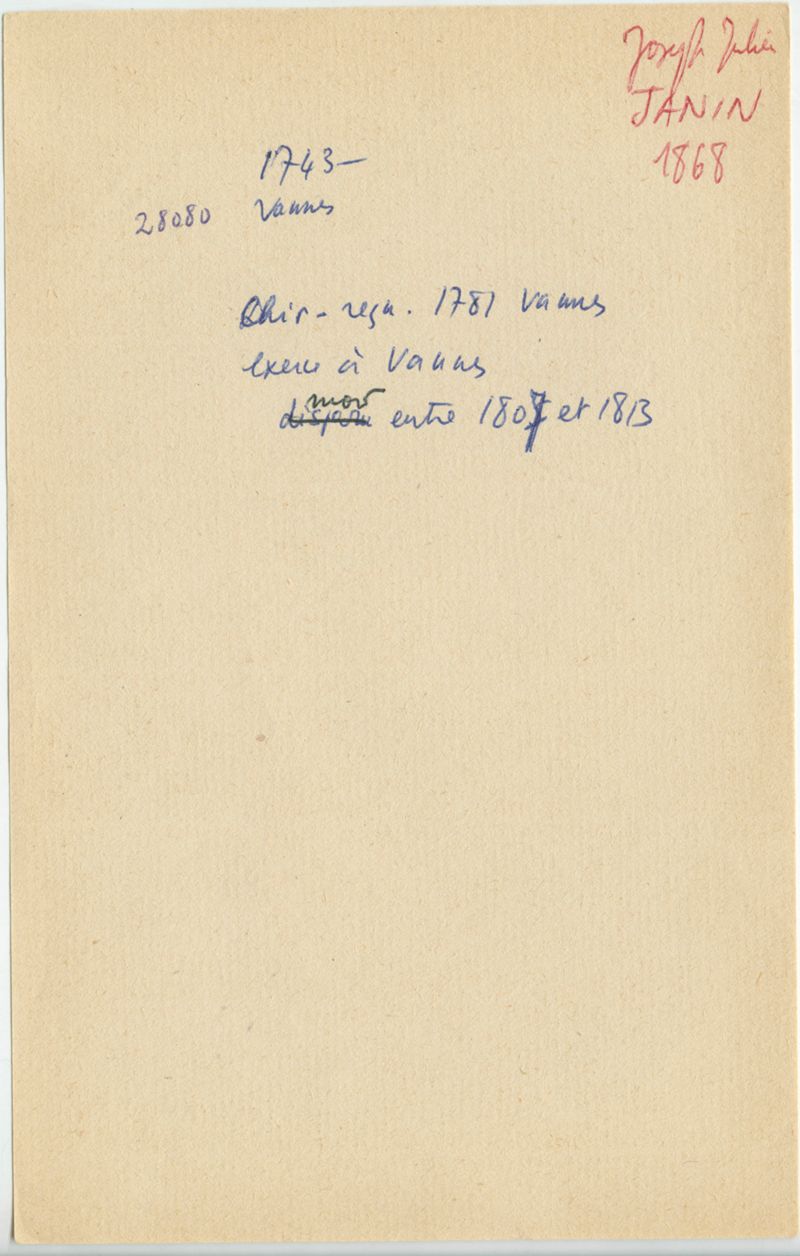 Joseph Julien
JANIN
1868
1743-
28080 Vannes
Chir- reçu. 1781 Vannes
exerce à Vannes
mort
disparu entre 1807 et 1813